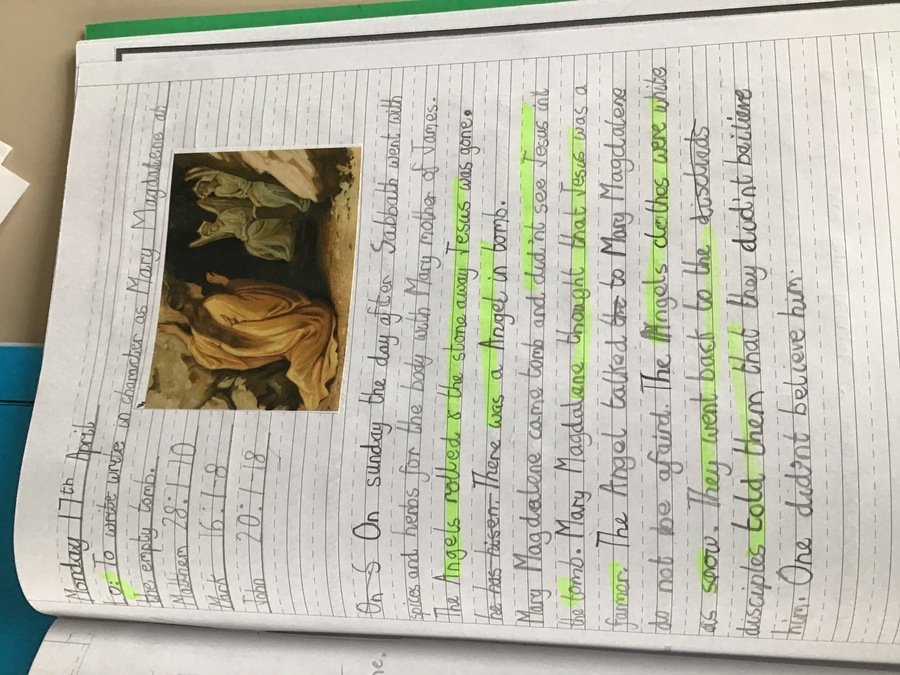 Monday 17th April
LO: To write write in character as Mary Magdalene at
the empty tomb.
Mathew 28:1-10
Mark 16:1-8
John 20:1-18
On S On sunday the day after Sabbath went with
spices and herbs for the body with Mary mother of James.
The Angels rolled & the stone away Jesus was gone.
he has risen. There was a Angel in tomb.
Mary Magdalene came tomb and did'nt see Jesus int
the tomb. Mary Magdalene thought that Jesus was a
farmer. The Angel talked to to Mary Magdalene
do not be afaird. The Angels clothas were white
as snow. They went back to the
disciples told them that they did'nt beilieve
him. One did'nt believe him.
ne.